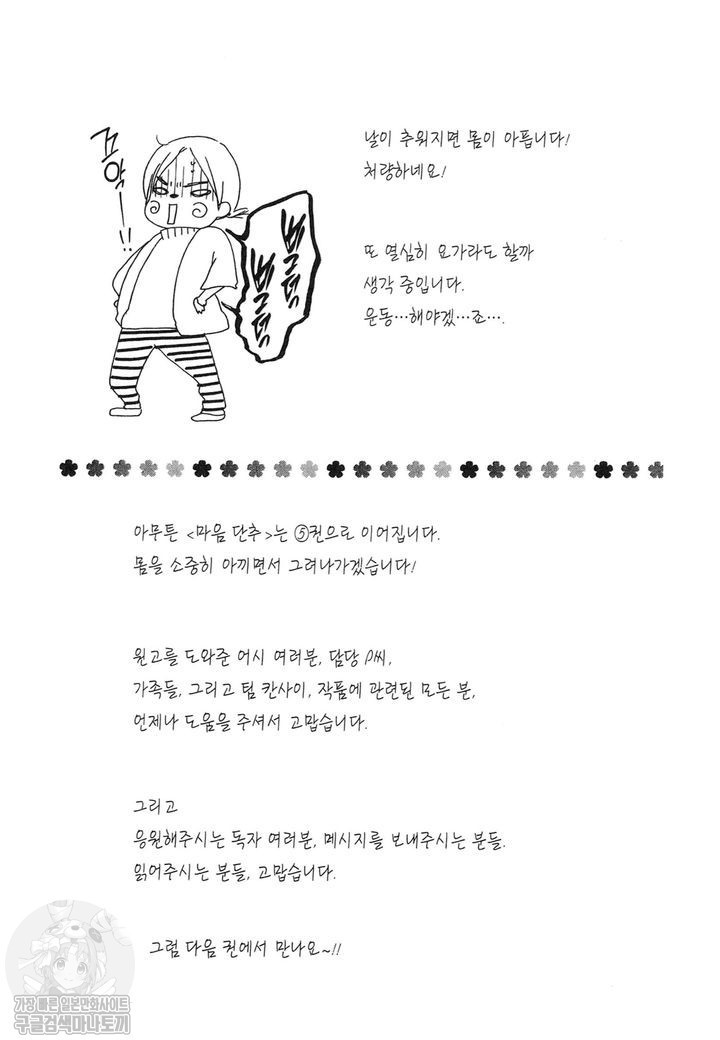 끄악—!!
삐그덕
삐그덕
날이 추워지면 몸이 아픕니다!
처량하네요!
또 열심히 요가라도 할까
생각 중입니다.
운동…해야겠…죠….
아무튼 <마음 단추>는 ⑤권으로 이어집니다.
몸을 소중히 아끼면서 그려나가겠습니다!
원고를 도와준 어시 여러분, 담당 P씨,
가족들, 그리고 팀 칸사이, 작품에 관련된 모든 분,
언제나 도움을 주셔서 고맙습니다.
그리고
응원해주시는 독자 여러분, 메시지를 보내주시는 분들.
읽어주시는 분들, 고맙습니다.
그럼 다음 권에서 만나요~!!
가장 빠른 일본만화사이트
구글검색마나토끼